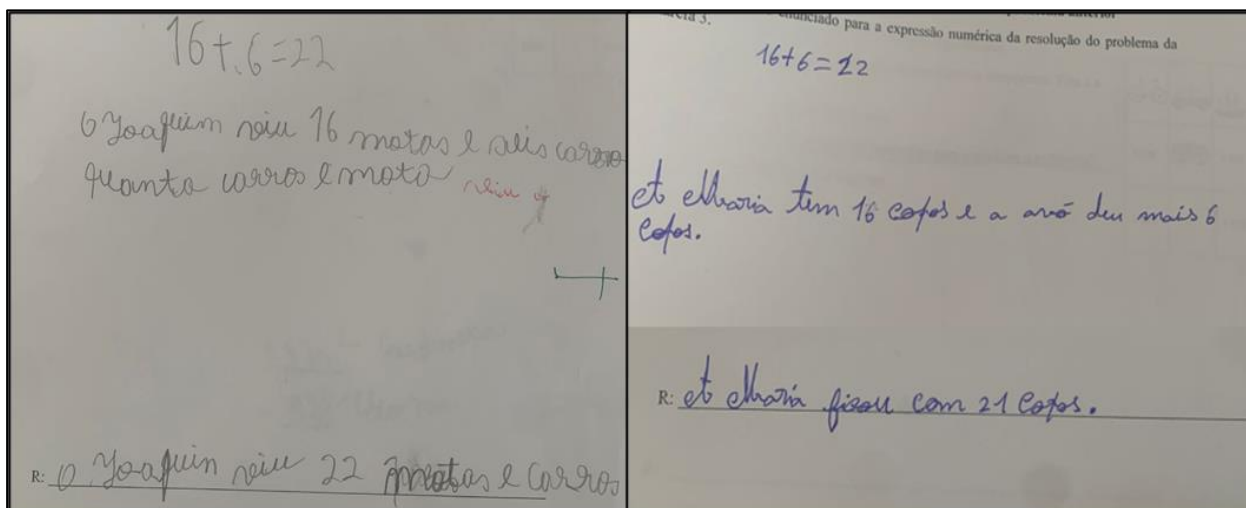 16+6=22
O Joaquim viu 16 motas e seis carros
quanto carros e mota viu
R: O Joaquin viu 22 motas e carros
3.
enunciado para a expressão numérica da resolução do problema da
16+6=22
A Maria tem 16 copos e a avó deu mais 6
copos.
R: A Maria ficou com 21 copos.